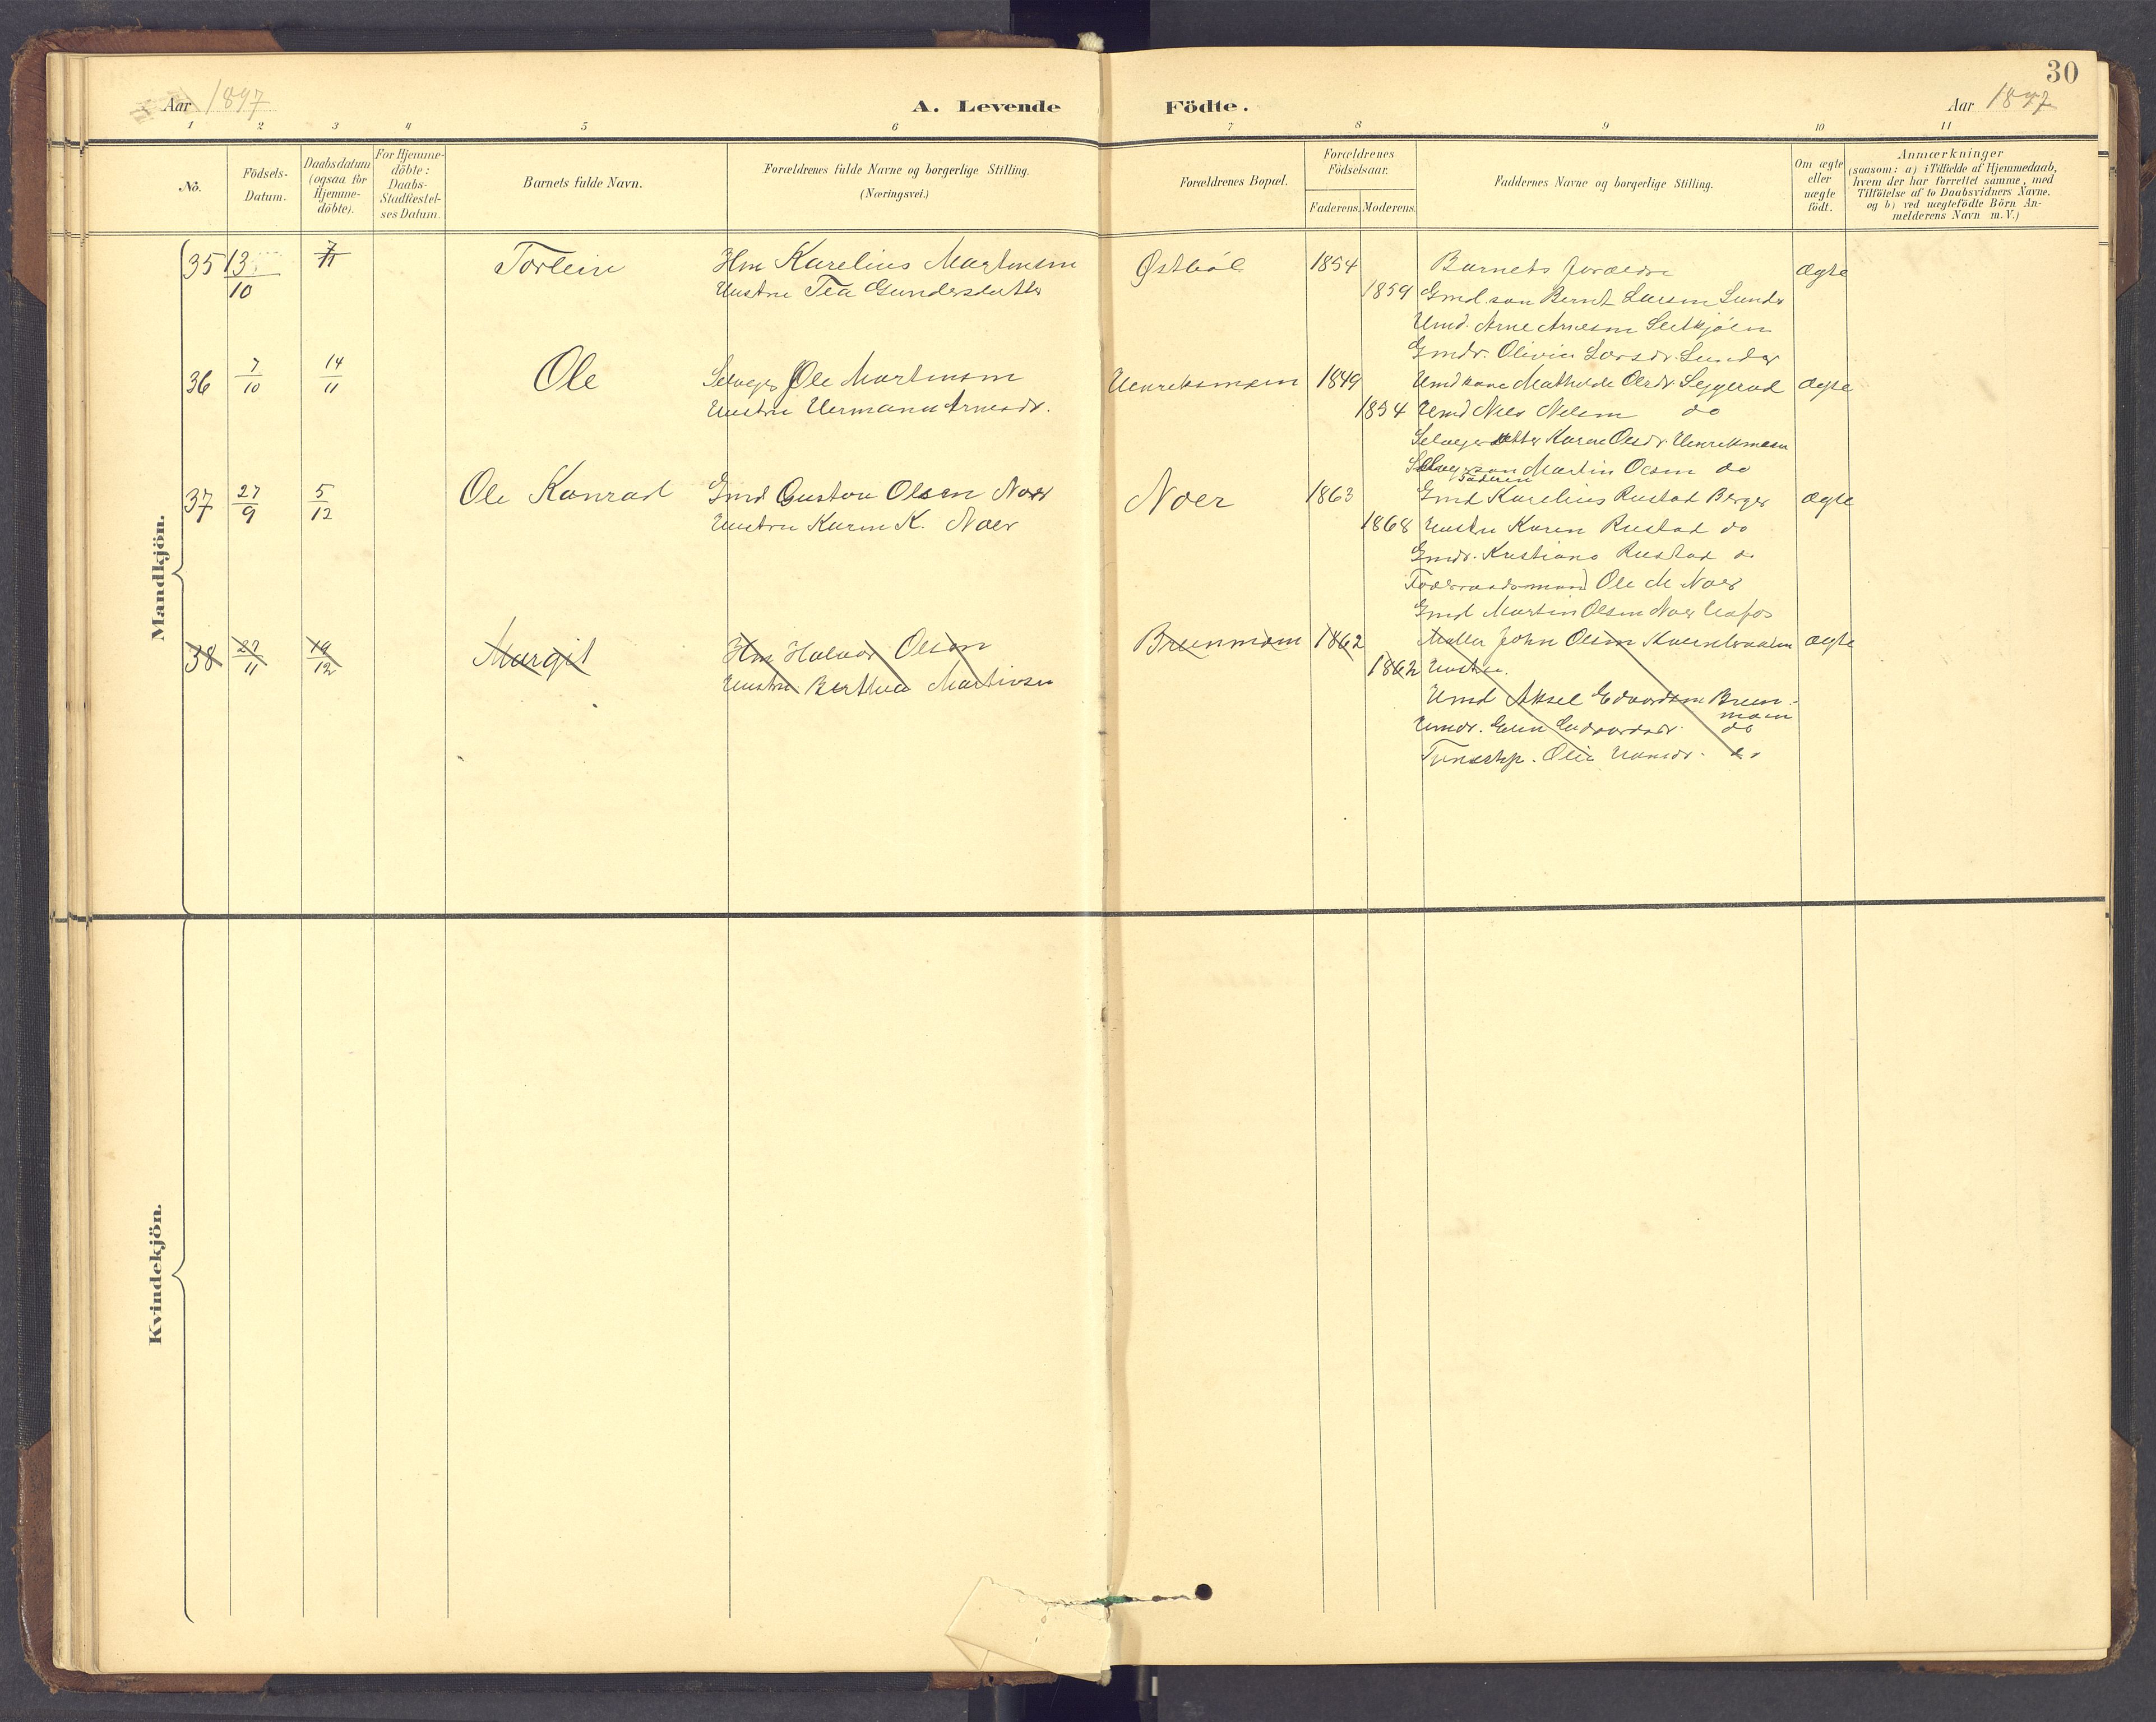 30
Aar 1897
A. Levende Födte.
Aar 1897
1 2 3 4 5 6 7 8 9 10 11
No.
Födsels-
Datum.
Daabsdatum
(ogsaa for
Hjemme-
döbte).
For Hjemme-
döbte:
Daabs-
Stadfæstel-
ses Datum.
Barnets fulde Navn.
Forældrenes fulde Navne og borgerlige Stilling.
(Næringsvei.)
Forældrenes Bopæl.
Forældrenes
Födselsaar.
Faderens. Moderens.
Faddernes Navne og borgerlige Stilling.
Om ægte
eller
uægte
født.
Anmærkninger
(saasom: a) i Tilfælde af Hjemmedaab,
hvem der har forrettet samme, med
Tilföielse af to Daabsvidners Navne.
og b) ved uægtefödte Börn An-
melderens Navn m.V.)
Mandkjön.
35 13/10 7/11 Torlein Hm Karelius Martinsen Østbøl 1854 Barnets forældre ægte
Hustru Tea Gundersdatter 1859 Gmd. søn Bernt Larsen Lunder
Umd. Arne Arnesen
Gmdr. Olivia Larsdr. Lunder
36 7/10 14/11 Ole Selveger Ole Martinsen Henriksmoen 1849 Umd kone Mathilde Olsdr. Seggerud ægte
Hustru Hermana Arnesdr. 1854 Umd Nils Nilsen do
Selveger datter Karen Olsdr. Henriksmoen
Selveger søn Martin Olsen do
Faderen
37 27/9 5/12 Ole Konrad Gmd Gustav Olsen Noer Noer 1863 Gmd Karelius Rustad Berger ægte
Hustru Karen K. Noer 1868 Hustru Karen Rustad do
Gmdr. Kristiane Rustad do
Föderaadsmand Ole M Noer
Gmd Martin Olsen Noer
38 27/11 19/12 Margit Hm Halvor Olsen Breenmoen 1862 Møller John Olsen ægte
Hustru Berthea Martinsen 1862 Hustru.
Umd Aksel Edvardsen Breen-
moen
Umdr. Elen Edvardsdr. do
Tjenestep. Olia Hansdr. do
Kvindekjön.